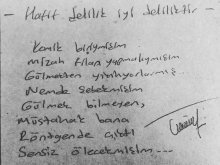 - Hafif delilik iyi deliliktir -
Kemik biriymişim
mizah filan yapmalıymışım
Gülmekten yiyiyorlarmış...
Nemde sebetmisim
Gülmek bilmeyen,
Müstahak bana
Röntgende çıktı
Sensiz ölecekmişim ---